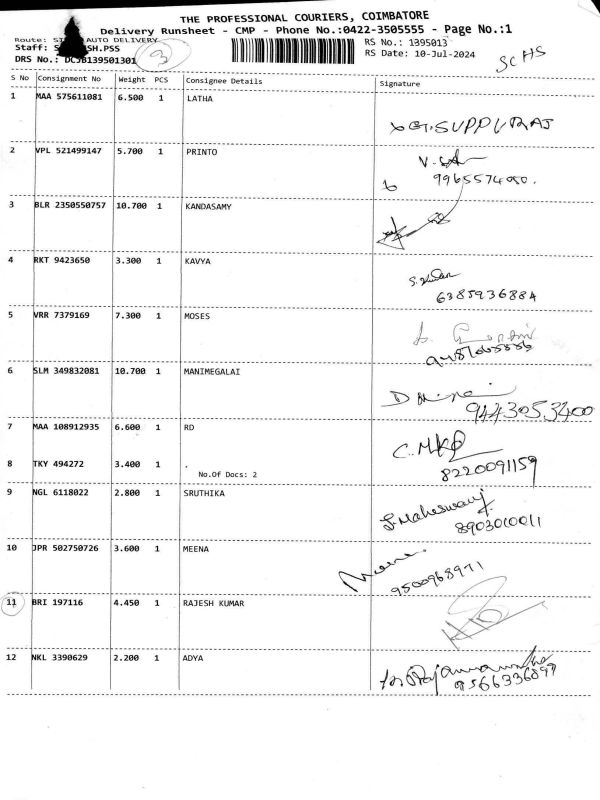 THE PROFESSIONAL COURIERS, COIMBATORE
Delivery Runsheet - CMP - Phone No.:0422-3505555 - Page No.:1
Route: AUTO DELIVERY RS No.: 1395013
Staff: SH.PSS RS Date: 10-Jul-2024
DRS No.: DCJB139501301 3 SCHS
S No Consignment No Weight PCS Consignee Details Signature
1 MAA 575611081 6.500 1 LATHA
G.SUPPURAJ
2 VPL 521499147 5.700 1 PRINTO
3 BLR 2350550757 10.700 1 KANDASAMY
4 RKT 9423650 3.300 1 KAVYA
6385936884
5 VRR 7379169 7.300 1 MOSES
6 SLM 349832081 10.700 1 MANIMEGALAI
9443053400
7 MAA 108912935 6.600 1 RD
C.MKP
8 TKY 494272 3.400 1 .
No.Of Docs: 2
8220091159
9 NGL 6118022 2.800 1 SRUTHIKA
J.Maheswari
8903010011
10 JPR 502750726 3.600 1 MEENA
Meena.
9500968971
11 BRI 197116 4.450 1 RAJESH KUMAR
12 NKL 3390629 2.200 1 ADYA
9566336897